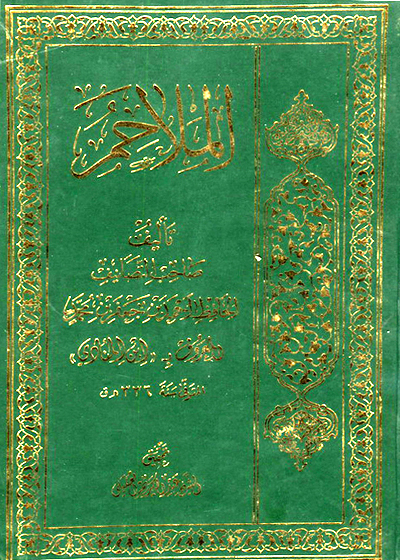 الملاحم
تأليف
صاحب التصانيف
الحافظ احمد بن جعفر بن محمد
المعروف بـ «ابن المنادي»
المتوفى سنة ٣٣٦ هـ ق
تحقيق